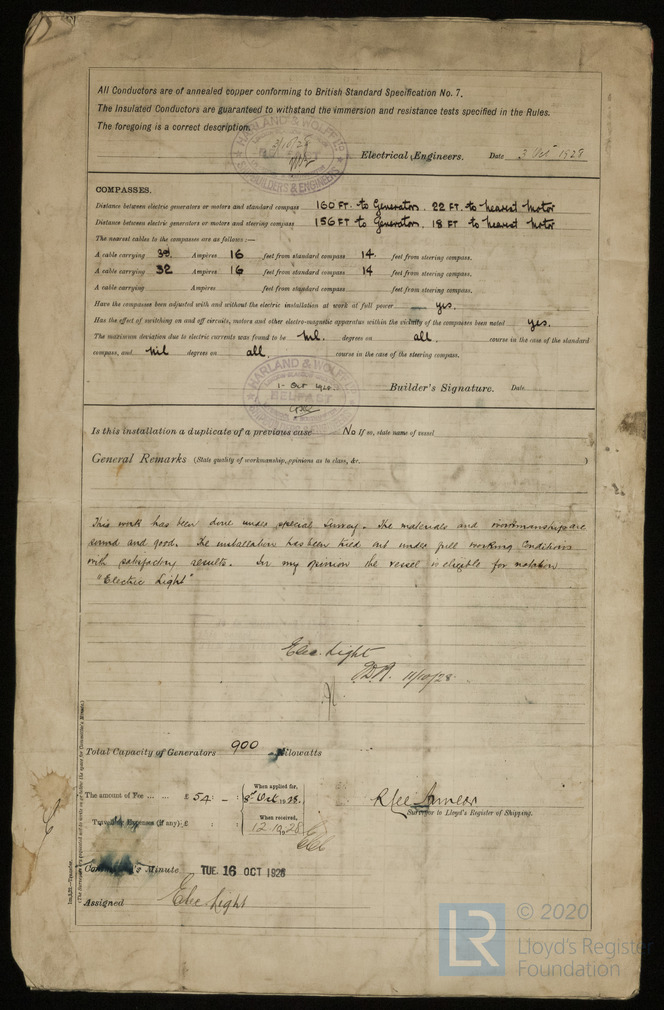 All Conductors are of annealed copper conforming to British Standard Specification No. 7.
The Insulated Conductors are guaranteed to withstand the immersion and resistance tests specified in the Rules.
The foregoing is a correct description.
HARLAND & WOLFF LTD
3/10/28
SHIPBUILDERS & ENGINEERS
Electrical Engineers. Date 3 Oct 1928
COMPASSES.
Distance between electric generators or motors and standard compass 160 FT. to Generators. 22 FT. to nearest motor
Distance between electric generators or motors and steering compass 156 FT to Generators. 18 FT to nearest motor
The nearest cables to the compasses are as follows:—
A cable carrying Amperes 16 feet from standard compass 14 feet from steering compass.
A cable carrying 32 Amperes 16 feet from standard compass 14 feet from steering compass.
A cable carrying Amperes feet from standard compass feet from steering compass.
Have the compasses been adjusted with and without the electric installation at work at full power yes.
Has the effect of switching on and off circuits, motors and other electro-magnetic apparatus within the vicinity of the compasses been noted yes.
The maximum deviation due to electric currents was found to be Nil. degrees on all. course in the case of the standard
compass, and nil degrees on all. course in the case of the steering compass.
HARLAND & WOLFF
BELFAST
1- Oct Builder's Signature. Date
Is this installation a duplicate of a previous case No If so, state name of vessel
General Remarks (State quality of workmanship, opinions as to class, &c. )
This work has been done under special survey. The materials and workmanship are
sound and good. The installation has been tried out under full working conditions
with satisfactory results. In my opinion the vessel is eligible for notation
"Electric Light"
Elec. Light
11/10/28.
Total Capacity of Generators 900 Kilowatts
The amount of Fee ... ... £ 54 : - : When applied for, 8th Oct 1928.
Travelling Expenses (if any) £ : : When received, 12.10.28
Surveyor to Lloyd's Register of Shipping.
Committee's Minute TUE. 16 OCT 1928
Assigned Elec Light
(The Surveyors are requested not to write on or below the space for Committee's Minute.)
© 2020
LR
Lloyd's Register
Foundation